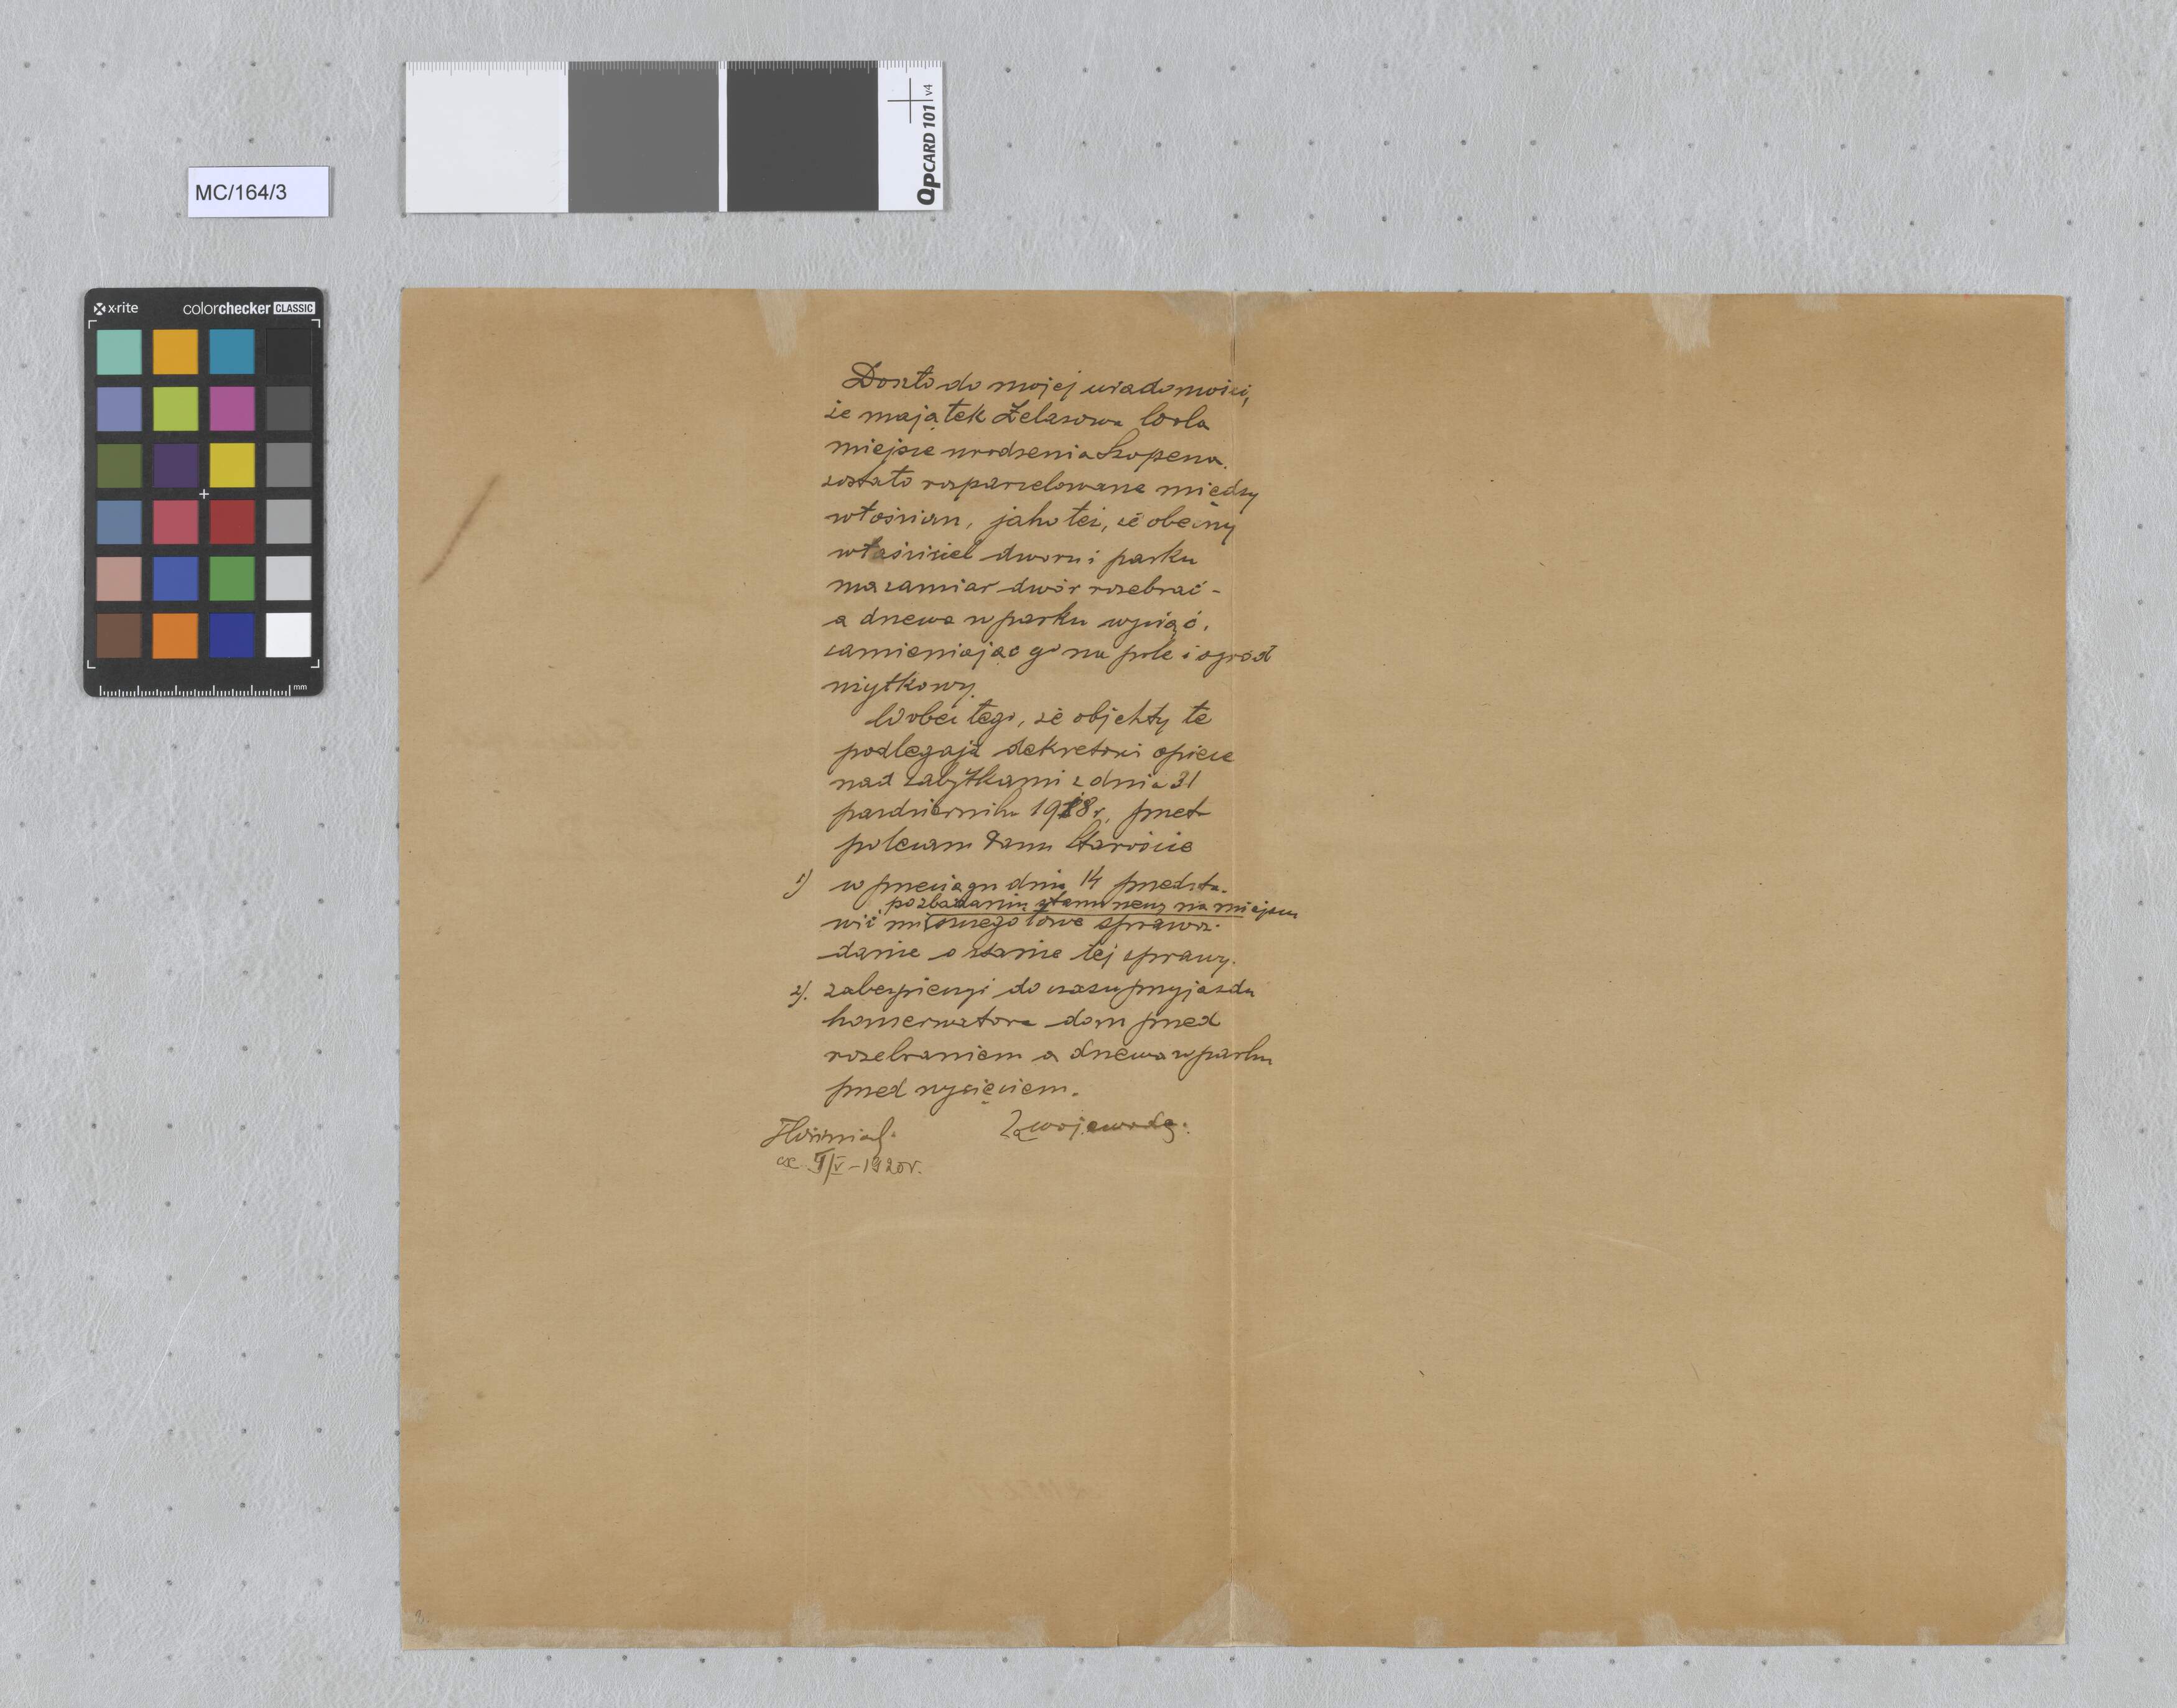 QPCARD 101 v4
MC/164/3
x-rite colorchecker CLASSIC
mm
Doszło do mojej wiadomości,
że majątek Żelazowa Wola
miejsce urodzenia Szopena
zostało rozparcelowane między
włościan, jako też, że obecny
właściciel dworu i parku
ma zamiar dwór rozebrać -
a drzewa w parku wyciąć,
zamieniając go na pole i ogród
użytkowy.
Wobec tego, że objekty te
podlegają dekretowi opiece
nad zabytkami z dnia 31
pazdziernika 1918 r, przeto
polecam Panu Staroście
1) w przeciągu dnia 14 przedsta-
po zbadaniu stanu rzeczy na miejscu
wić mi szczegółowe sprawoz-
danie o stanie tej sprawy.
2). zabezpieczyć do czasu przyjazdu
konserwatora dom przed
rozebraniem a drzewa w parku
przed wycięciem.
Za wojewodę:
/V - 1920 r.